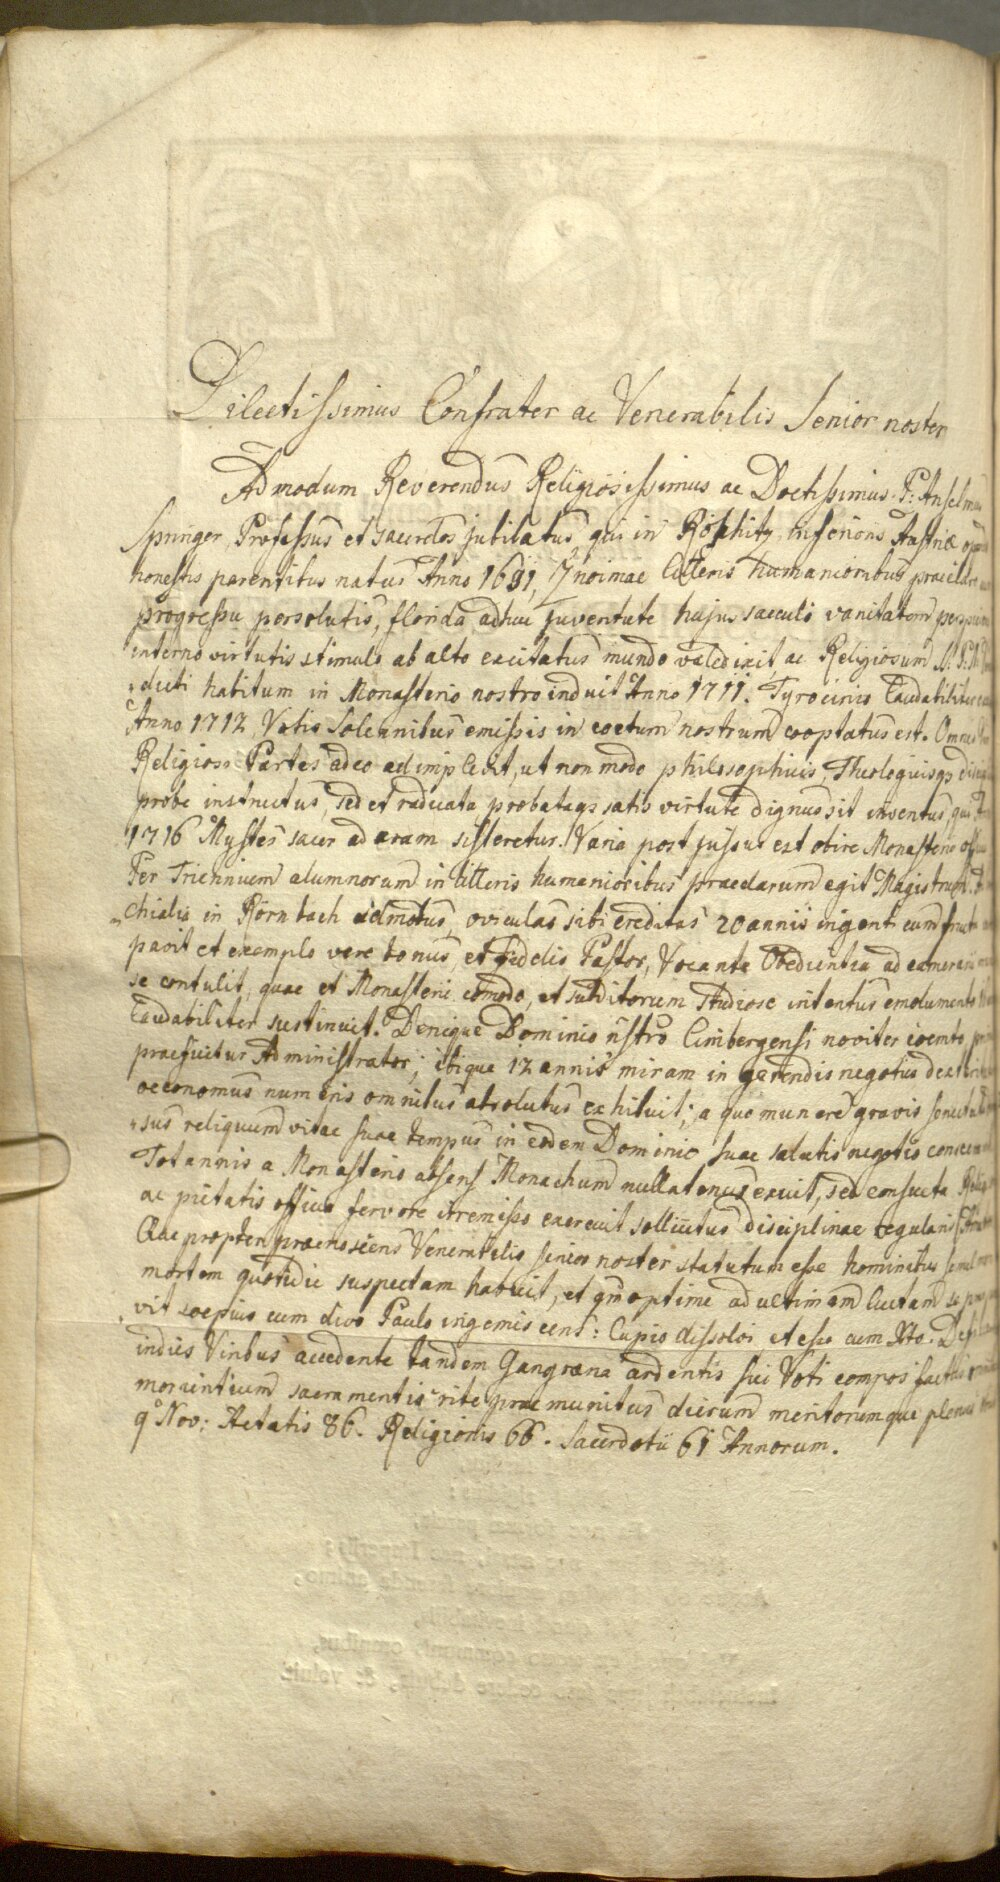 Dilectissimus Confrater ac Venerabilis Senior noster
Admodum Reverendus Religiosissimus ac Doctissimus P: Anselmus
Springer, Professus et sacerdos jubilatus, qui in Röschitz inferioris Austriæ
honestis parentibus natus Anno 1691, Litteris humanioribus praeclaro
progressu persolutis, florida adhuc juventute hujus saeculi vanitatem
interno virtutis stimulo ab alto excitatus mundo valedixit ac Religiosum S: P: N:
dicti habitum in Monasterio nostro induit Anno 1711. Tyrocinio laudabiliter
Anno 1712, Votis Solennibus emissis in coetum nostrum cooptatus est. Omnes
Religiosi Partes adeo adimplevit, ut non modo philosophicis, Theologicisqs
probe instructus, sed et radicata probataqs satis virtute dignus sit inventus, qui
1716 Mystes sacer ad aram sisteretur. Varia post jussus est obire Monasterii
Per Triennium alumnorum in litteris humanioribus praeclarum egit Magistrum.
chialis in Rörnbach admotus, oviculas sibi creditas 20 annis ingenti cum fructu
pavit et exemplo vere bonus, et fidelis Pastor, Vocante Obedientia ad
se contulit, quae et Monasterii comodo, et subditorum studiose intentus emolumento
laudabiliter sustinuit. Denique Dominio nstro Limbergensi noviter coemto
praeficitur Administrator; ibique 12 annis miram in gerendis negotiis
oeconomus numeris omnibus absolutus exhibuit; a quo munere gravis
sus reliquum vitae suae tempus in eodem Dominio suae salutis negotio
Tot annis a Monasterio absens Monachum nullatenus exuit, sed consueta
ac pietatis officia fervore irremisso exercuit sollicitus disciplinae regularis
Quapropter praenoscens Venerabilis senior noster statutum esse hominibus semel
mortem quotidie suspectam habuit, et qm optime ad ultimam luctam se
vit soepius cum divo Paulo ingemiscens: Cupio dissolvi et esse cum Xto.
indies Viribus accedente tandem Gangraena ardentis sui Voti compos factus
morientium sacramentis rite praemunitus dierum meritorumque plenus
9º Nov: Aetatis 86. Religionis 66. Sacerdotii 61 Annorum.